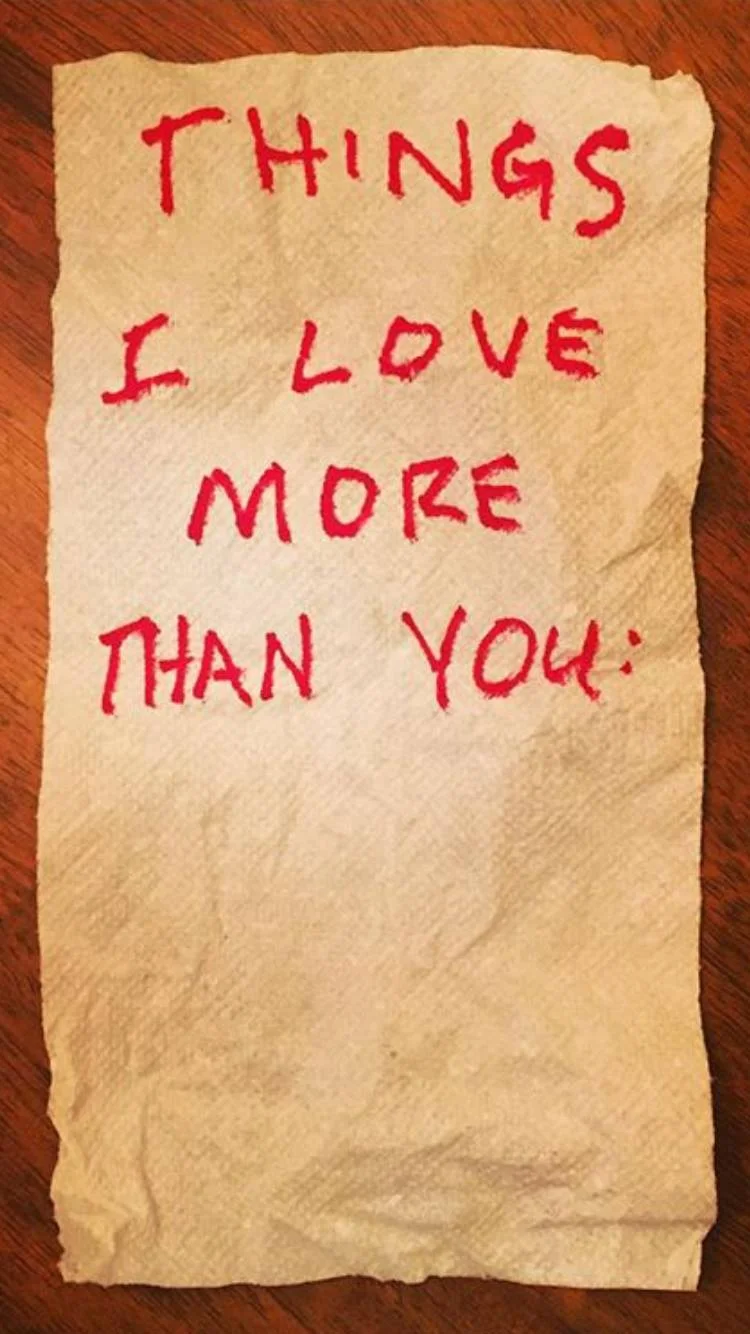 THINGS
I LOVE
MORE
THAN YOU: